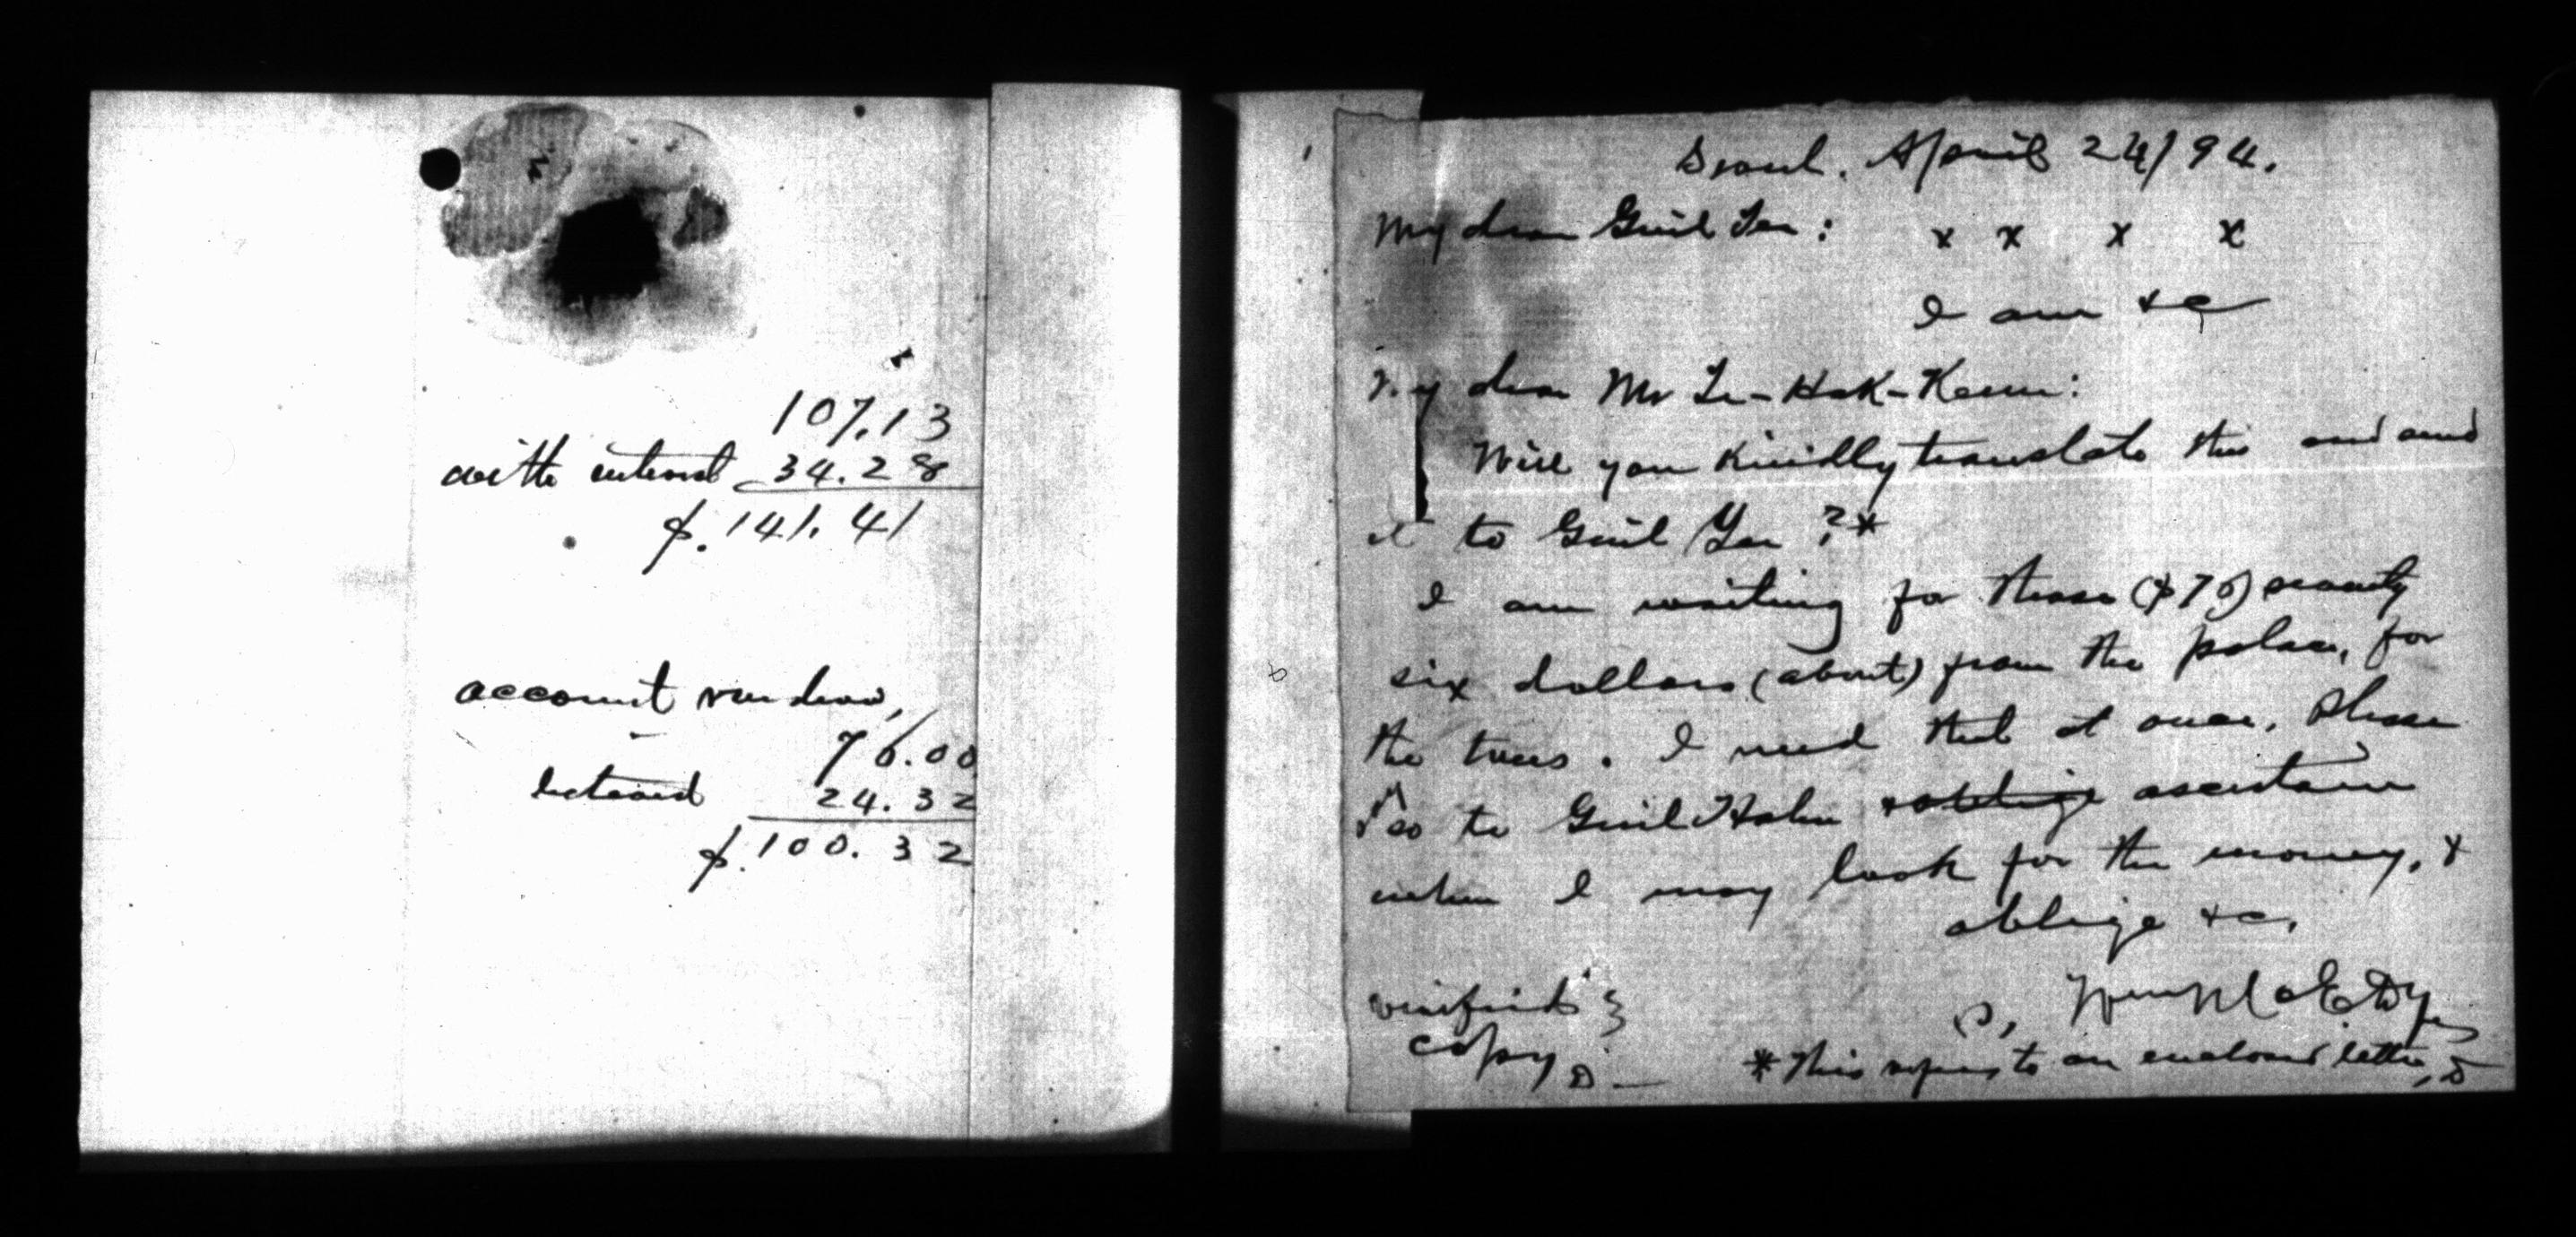 107.13
with interest 34.28
$.141.41
account rendered,
76.00
interest 24.32
$.100.32
Seoul. April 24/94.
My dear Genl Yee: x x x x
I am &c
My dear Mr Ye-Hak-Keun:
Will you kindly translate this and send
it to Genl Yee?*
I am waiting for those ($76) seventy
six dollars (about) from the palace, for
the trees. I need that at once. Please
go to Genl Hahn & oblige ascertain
when I may look for the money, &
oblige &c.
S, Wm McE Dye
copy D.—
* This refers to an enclosed letter, D